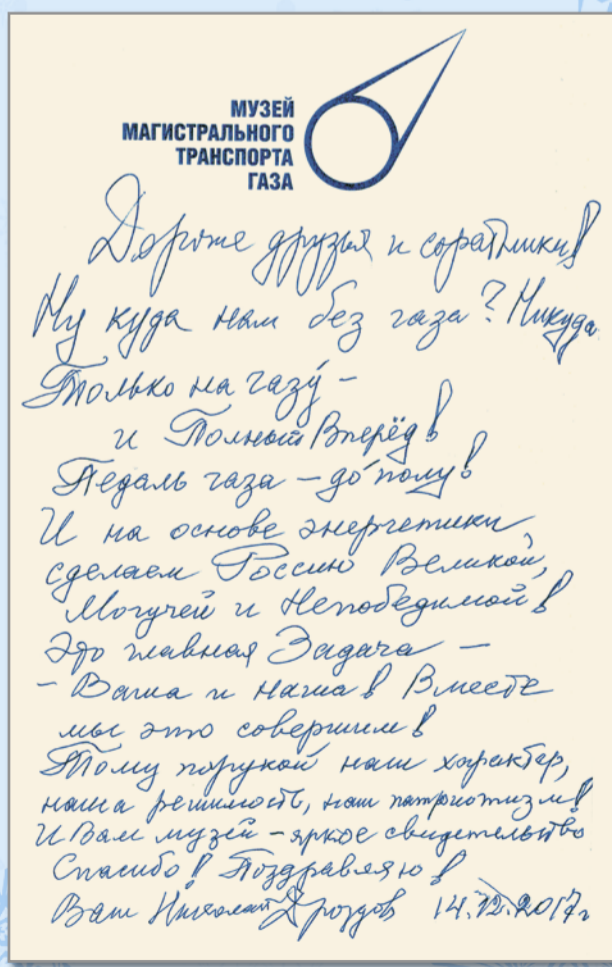 МУЗЕЙ
МАГИСТРАЛЬНОГО
ТРАНСПОРТА
ГАЗА
Дорогие друзья и соратники!
Ну куда нам без газа? Никуда
Только на газу́ –
и Полный Вперёд!
Педаль газа – до́ полу!
И на основе энергетики
сделаем Россию Великой,
Могучей и Непобедимой!
Это главная Задача –
– Ваша и наша! Вместе
мы это совершим!
Тому порукой наш характер,
наша решимость, наш патриотизм!
И Ваш музей – яркое свидетельство
Спасибо! Поздравляю!
Ваш Николай Дроздов 14.12.2017г